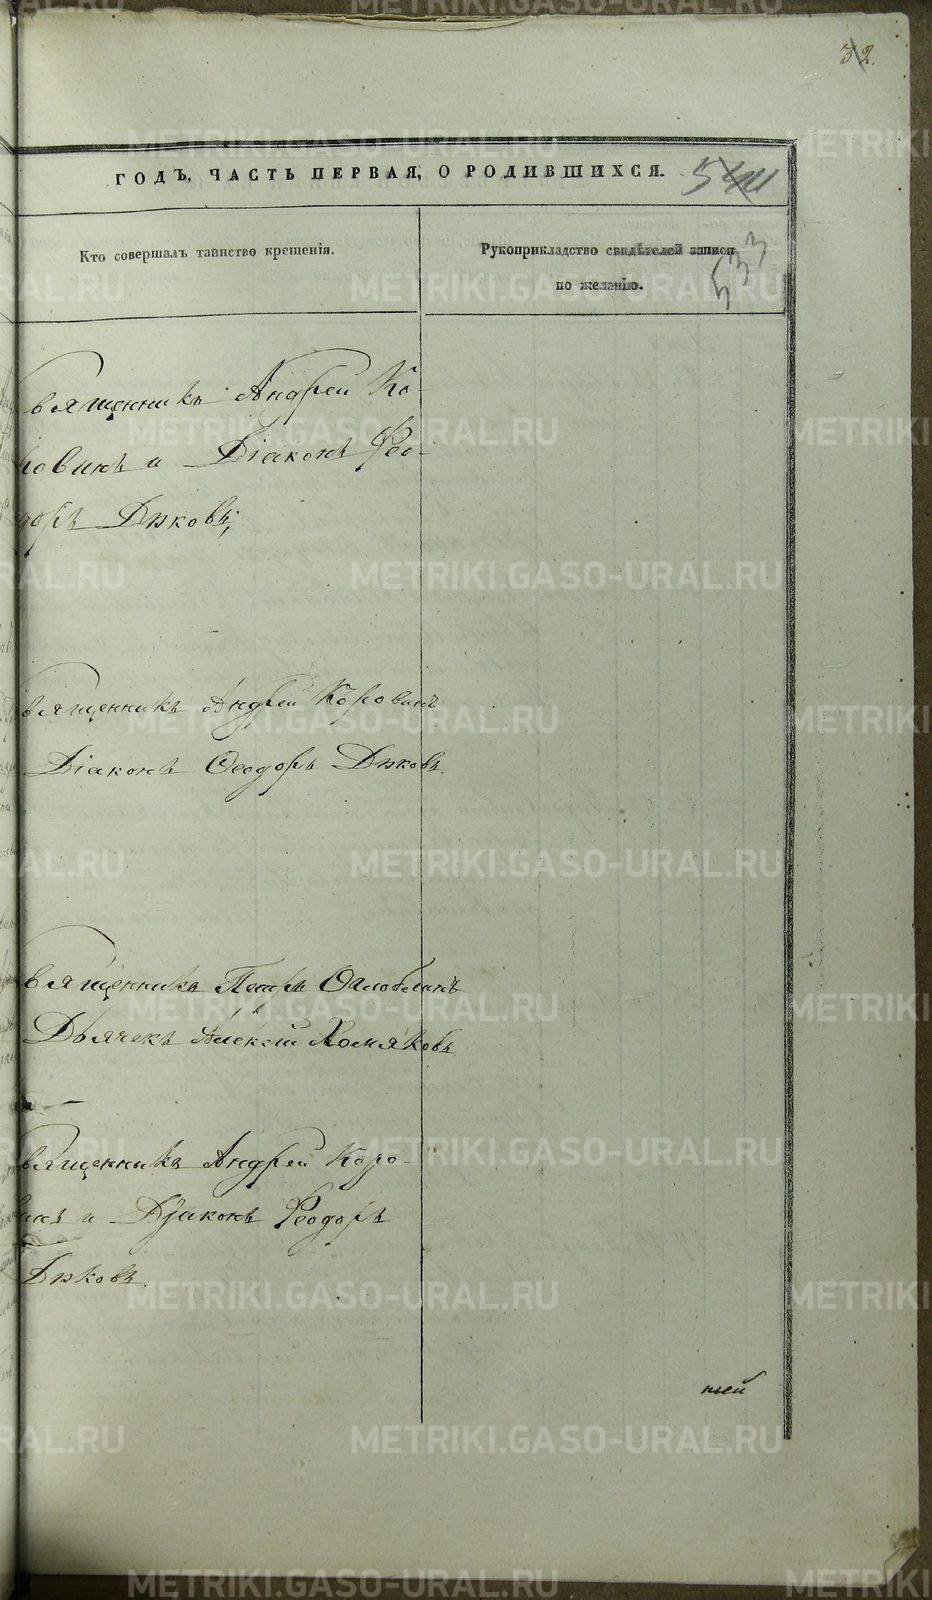 32.
ГОДЪ, ЧАСТЬ ПЕРВАЯ, О РОДИВШИХСЯ.
533
Кто совершалъ таинство крещенія.
Рукоприкладство свидѣтелей записи
по желанію.
Священникъ Андрей Ко-
ровинъ и Діаконъ Ѳео-
доръ Дьковъ;
Священникъ Андрей Коровинъ
Діаконъ Ѳеодоръ Дьковъ.
Священникъ Петръ Оглоблинъ
Дьячекъ Алексѣй Хомяковъ
Священникъ Андрей Коро-
винъ и Діаконъ Ѳеодоръ
Дьковъ.
ный
METRIKI.GASO-URAL.RU